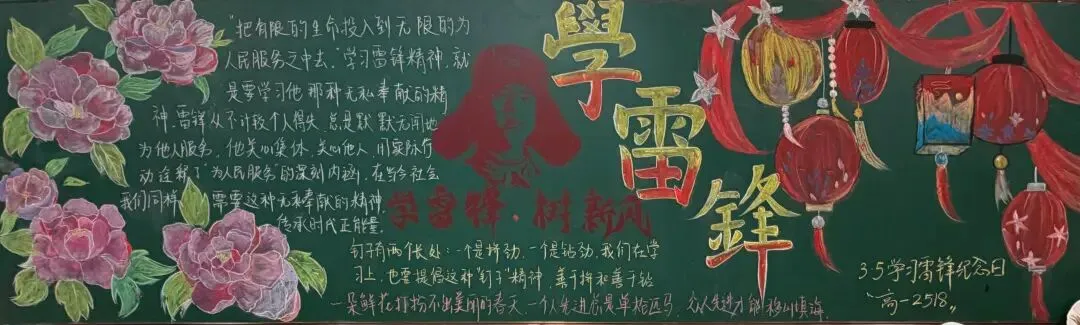 "把有限的生命投入到无限的为
人民服务之中去,"学习雷锋精神,就
是要学习他那种无私奉献的精
神,雷锋从不计较个人得失,总是默默无闻地
为他人服务,他关心集体,关心他人,用实际行
动诠释了为人民服务的深刻内涵,在当今社会
我们同样需要这种无私奉献的精神,
传承时代正能量
學
雷
鋒
学雷锋·树新风
钉子有两个长处:一个是挤劲,一个是钻劲,我们在学
习上,也要提倡这种"钉子"精神,善于挤和善于钻
一朵鲜花打扮不出美丽的春天,一个人先进总是单枪匹马,众人先进才能移山填海.
3.5学习雷锋纪念日
"高一2518"